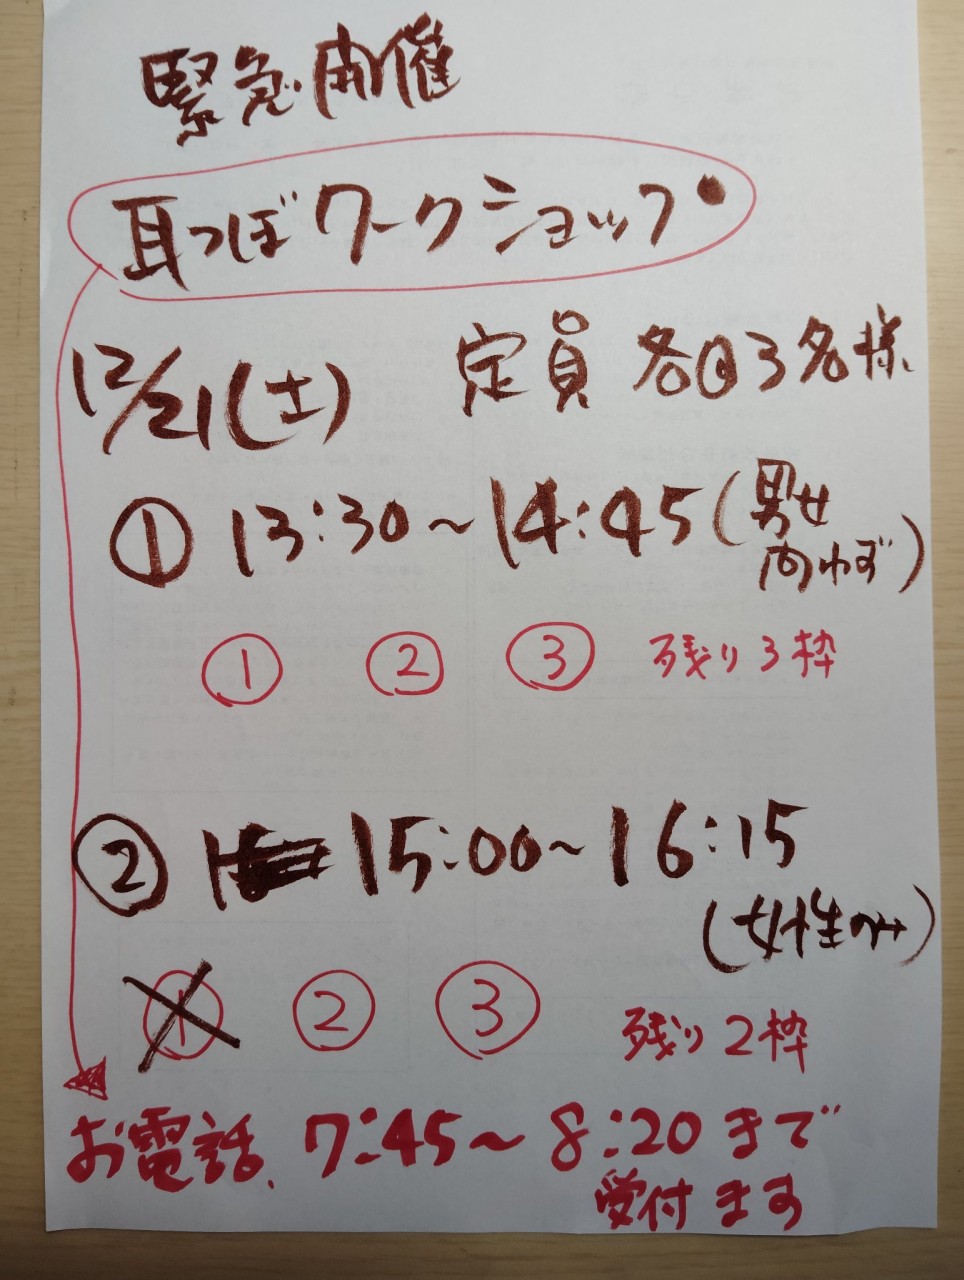 緊急開催
耳つぼワークショップ
12/21(土) 定員 各回3名様
① 13:30~14:45(男女問わず)
① ② ③ 残り3枠
② 15:00~16:15
(女性のみ)
① ② ③ 残り2枠
お電話、7:45~8:20まで
受付ます